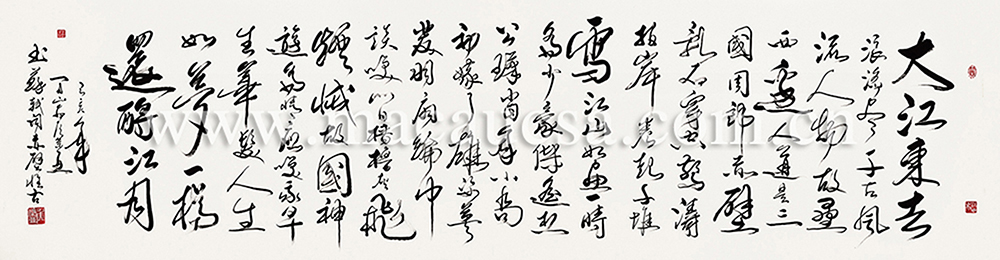 大江東去
浪淘尽千古風
流人物故壘
西邊人道是三
國周郎赤壁
亂石穿空驚濤
拍岸卷起千堆
雪江山如画一時
多少豪傑遥想
公瑾當年小喬
初嫁了雄姿英
發羽扇綸巾
談笑间檣櫓灰飛
煙滅故國神
遊多情應笑我早
生華髮人生
如夢一樽
還酹江月
己亥年
书蘇軾词赤壁懷古
www.macauesa.com.cn